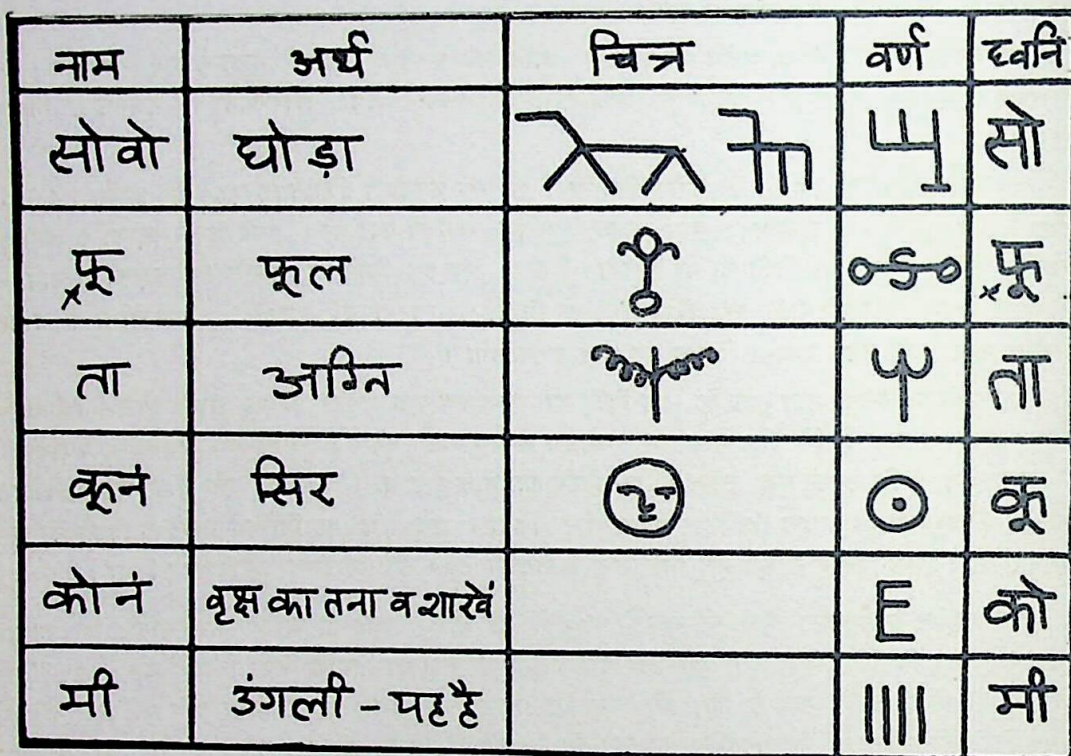 नाम अर्थ चित्र वर्ण ध्वनि
सोवो घोड़ा सो
फू फूल फू
ता अग्नि ता
कूनं सिर कू
कोनं वृक्ष का तना व शाखें E को
मी उंगली - यह है |||| मी